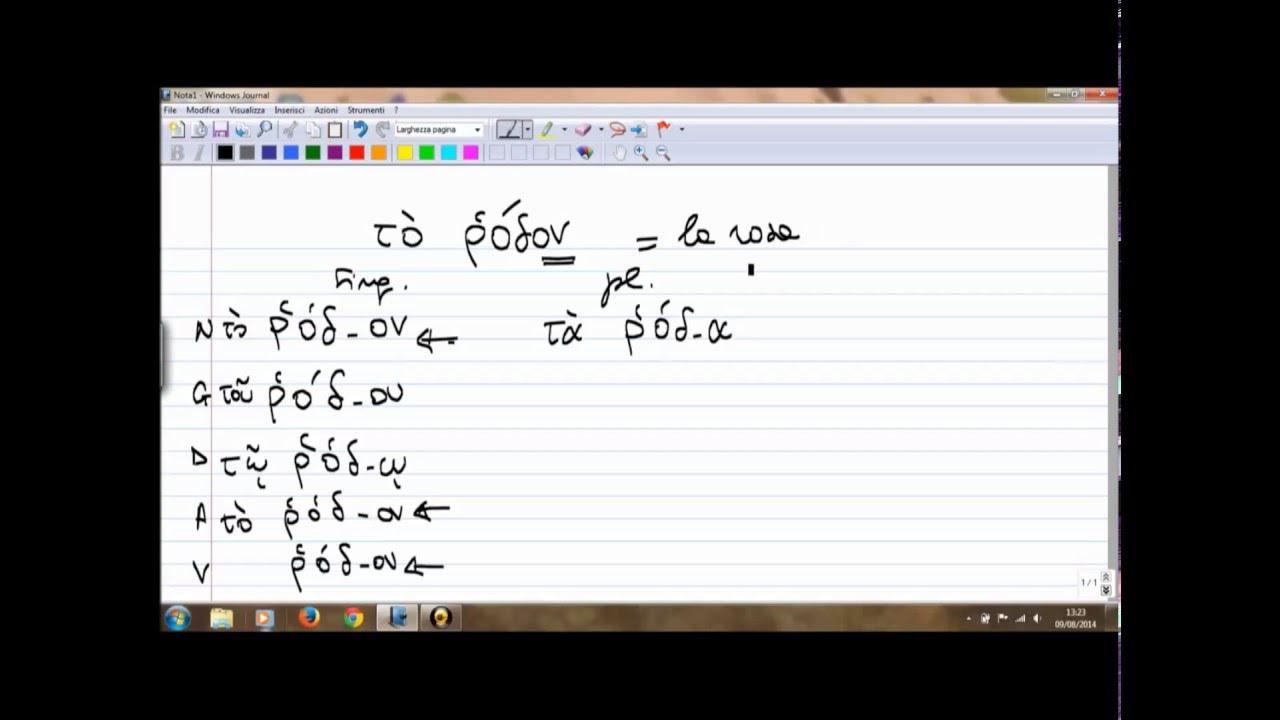 Nota1 - Windows Journal
File Modifica Visualizza Inserisci Azioni Strumenti ?
Larghezza pagina
B I
τὸ ῥόδον = la rosa
Sing. pl.
N τὸ ῥόδ-ον ← τὰ ῥόδ-α
G τοῦ ῥόδ-ου
D τῷ ῥόδ-ῳ
A τὸ ῥόδ-ον ←
V ῥόδ-ον ←
1/1
13:23
09/08/2014